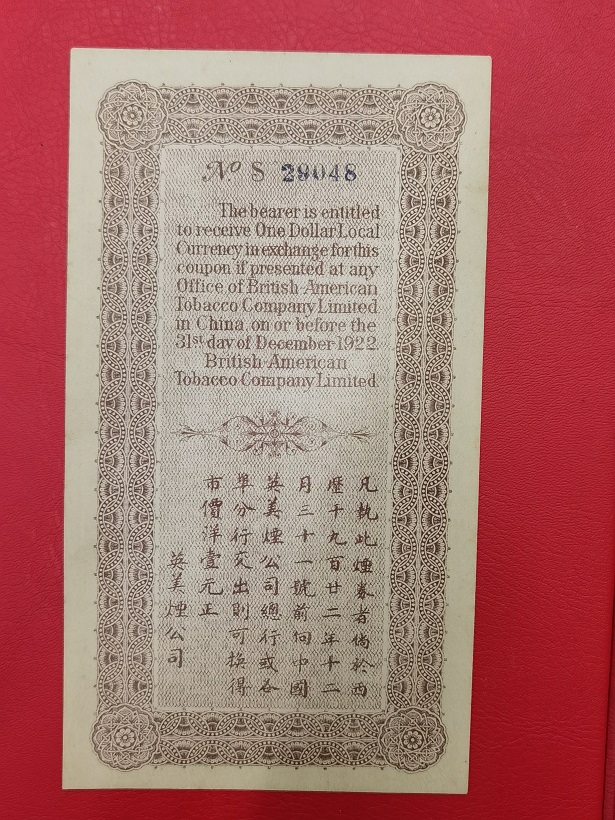 № S 29048
The bearer is entitled
to receive One Dollar Local
Currency in exchange for this
coupon if presented at any
Office of British-American
Tobacco Company Limited
in China, on or before the
31st day of December 1922.
British-American
Tobacco Company Limited.
凡執此煙券者倘於西
歷千九百廿二年十二
月三十一號前向中國
英美煙公司總行或各
埠分行交出則可換得
市價洋壹元正
英美煙公司